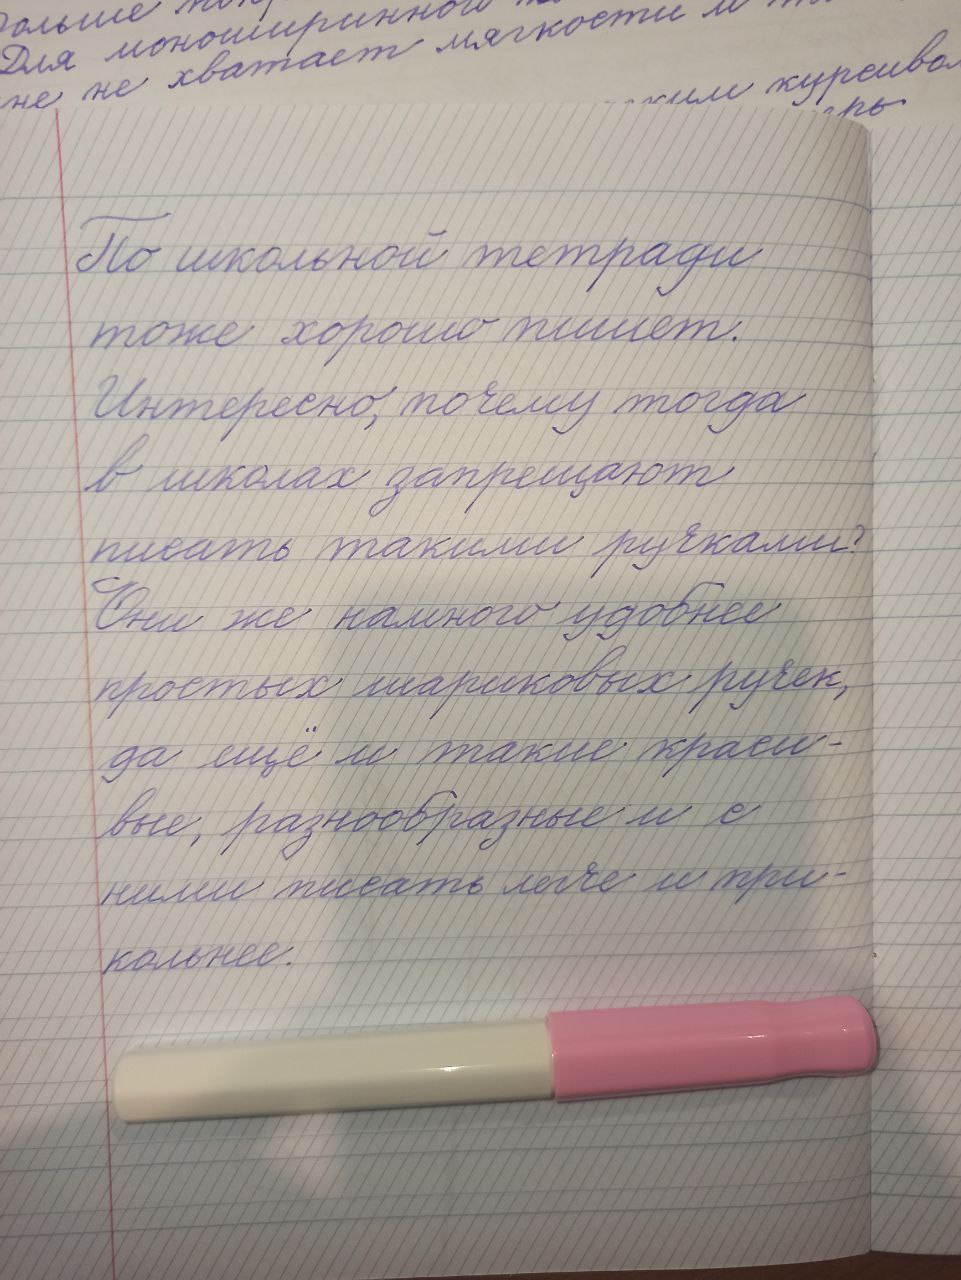 Для моноширинного
не хватает мягкости и
курсивом
По школьной тетради
тоже хорошо пишет.
Интересно, почему тогда
в школах запрещают
писать такими ручками?
Они же намного удобнее
простых шариковых ручек,
да ещё и такие краси-
вые, разнообразные и с
ними писать легче и при-
кольнее.